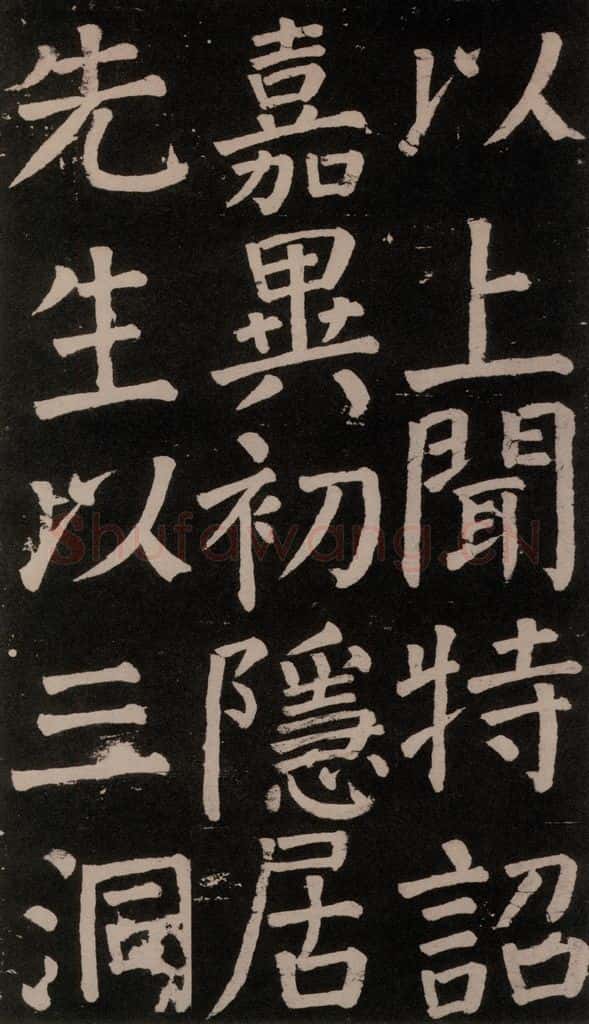 以上聞特詔
嘉異初隱居
先生以三洞
Shufawang.CN